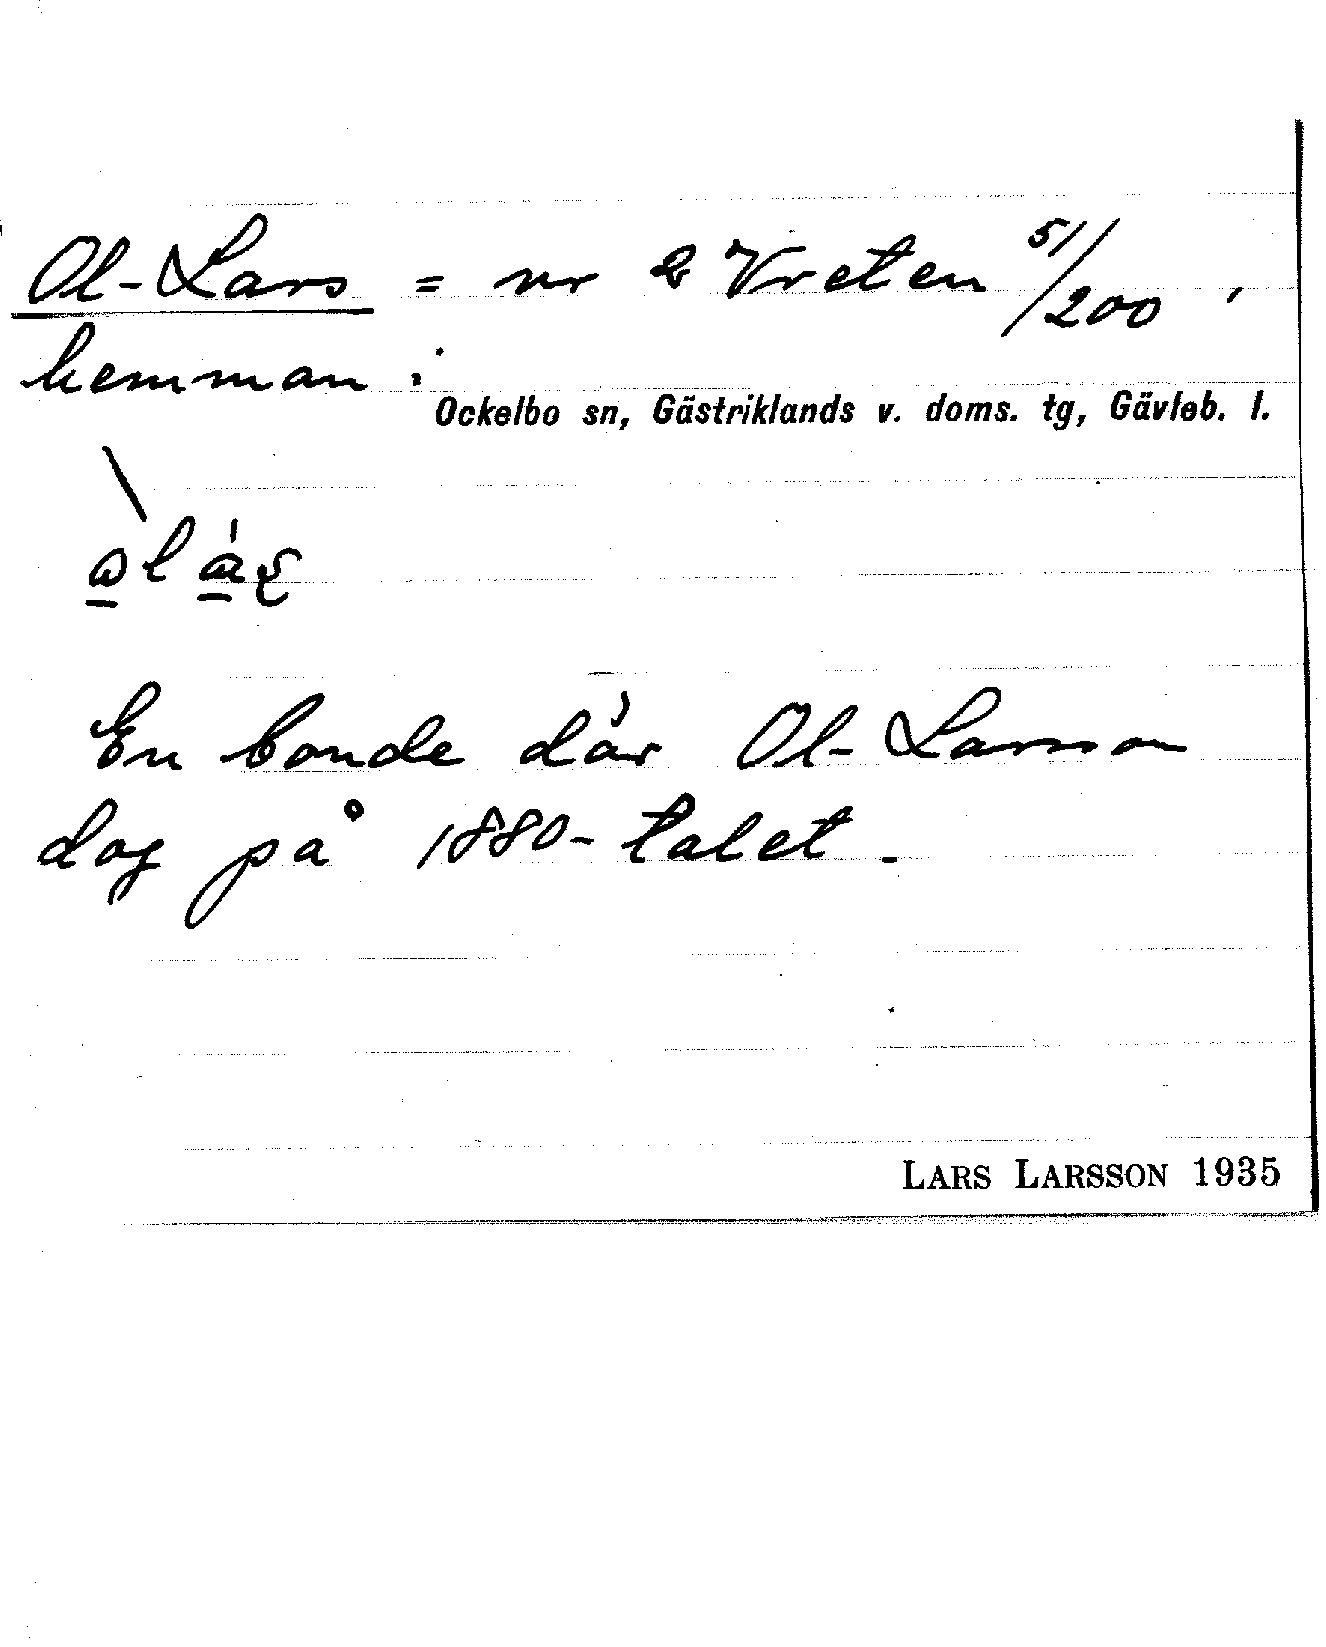 Ol-Lars = nr 2 Vreten 51/200,
hemman i
Ockelbo sn, Gästriklands v. doms. tg, Gävleb. l.
En bonde där Ol-Larsson
dog på 1880-talet.
LARS LARSSON 1935